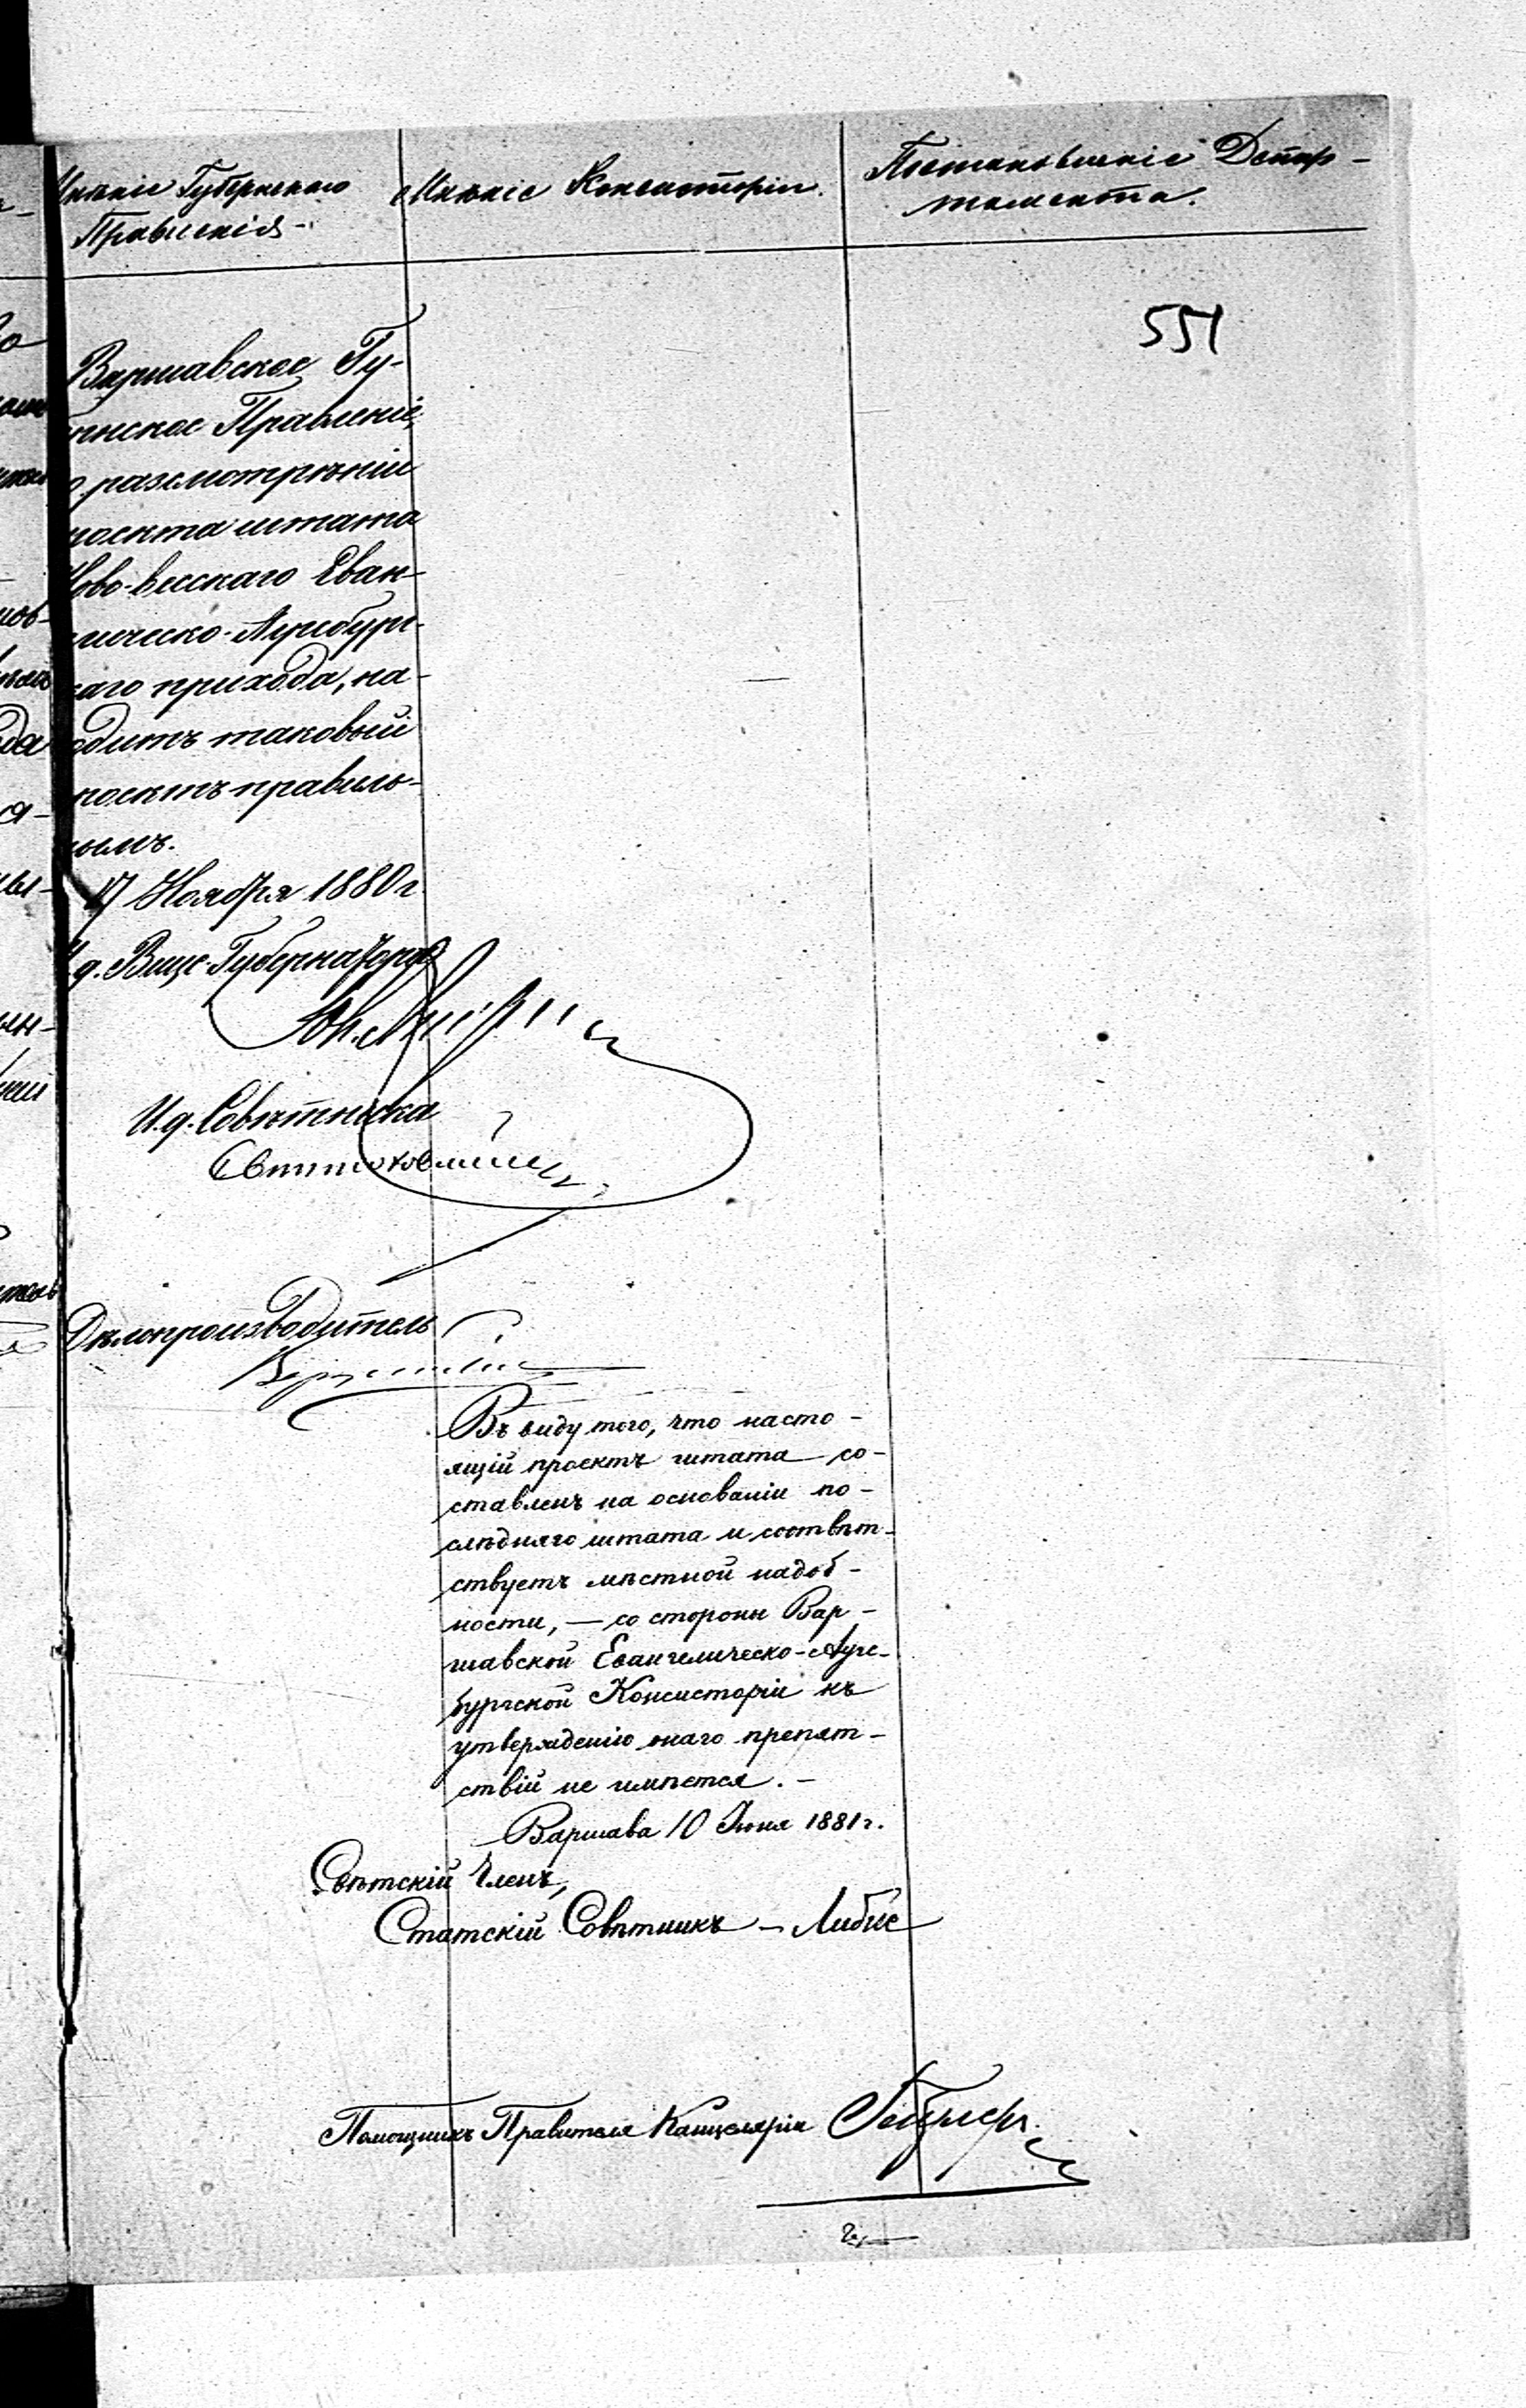 Мнѣніе Губернскаго
Правленія.
Мнѣніе Консисторіи.
Постановленіе Депар-
тамента.
551
Варшавское Гу-
нское Правленіе,
разсмотрѣніи
роекта штата
Ново-весскаго Еван-
лическо-Аугсбург-
каго прихода, на-
одитъ таковый
роектъ правиль-
нымъ.
17 Ноября 1880 г.
И.д. Вице-Губернатора
И.д. Совѣтника
Дѣлопроизводитель
Въ виду того, что насто-
ящій проектъ штата со-
ставленъ на основаніи по-
слѣдняго штата и соотвѣт-
ствуетъ мѣстной надоб-
ности, — со стороны Вар-
шавской Евангелическо-Аугс-
бургской Консисторіи къ
утвержденію онаго препят-
ствій не имѣется. —
Варшава 10 Іюня 1881 г.
Свѣтскій Членъ,
Статскій Совѣтникъ — Либъе
Помощникъ Правителя Канцеляріи